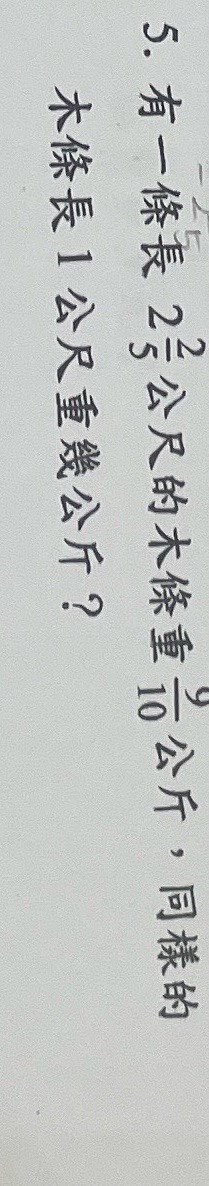 5. 有一條長 2 2/5 公尺的木條重 9/10 公斤，同樣的
木條長 1 公尺重幾公斤？